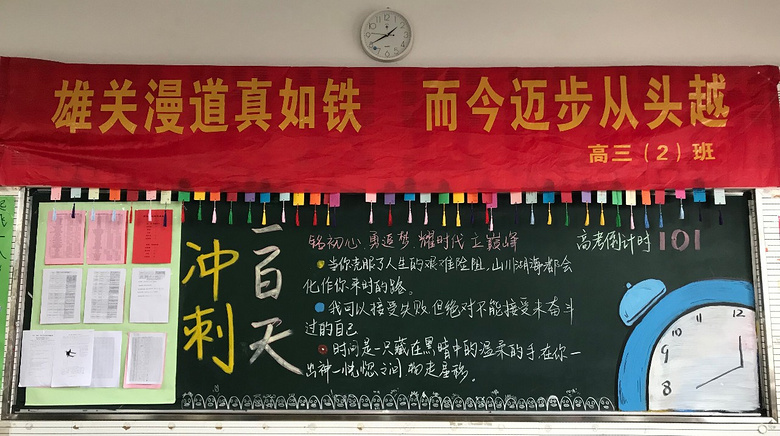 雄关漫道真如铁 而今迈步从头越
高三（2）班
一百天
冲刺
铭初心 勇追梦 耀时代 立巅峰
高考倒计时 101
当你克服了人生的艰难险阻,山川湖海都会
化作你来时的路。
我可以接受失败,但绝对不能接受未奋斗
过的自己
时间是一只藏在黑暗中的温柔的手,在你一
出神一恍惚之间 物走星移。
12
11
10
9
8